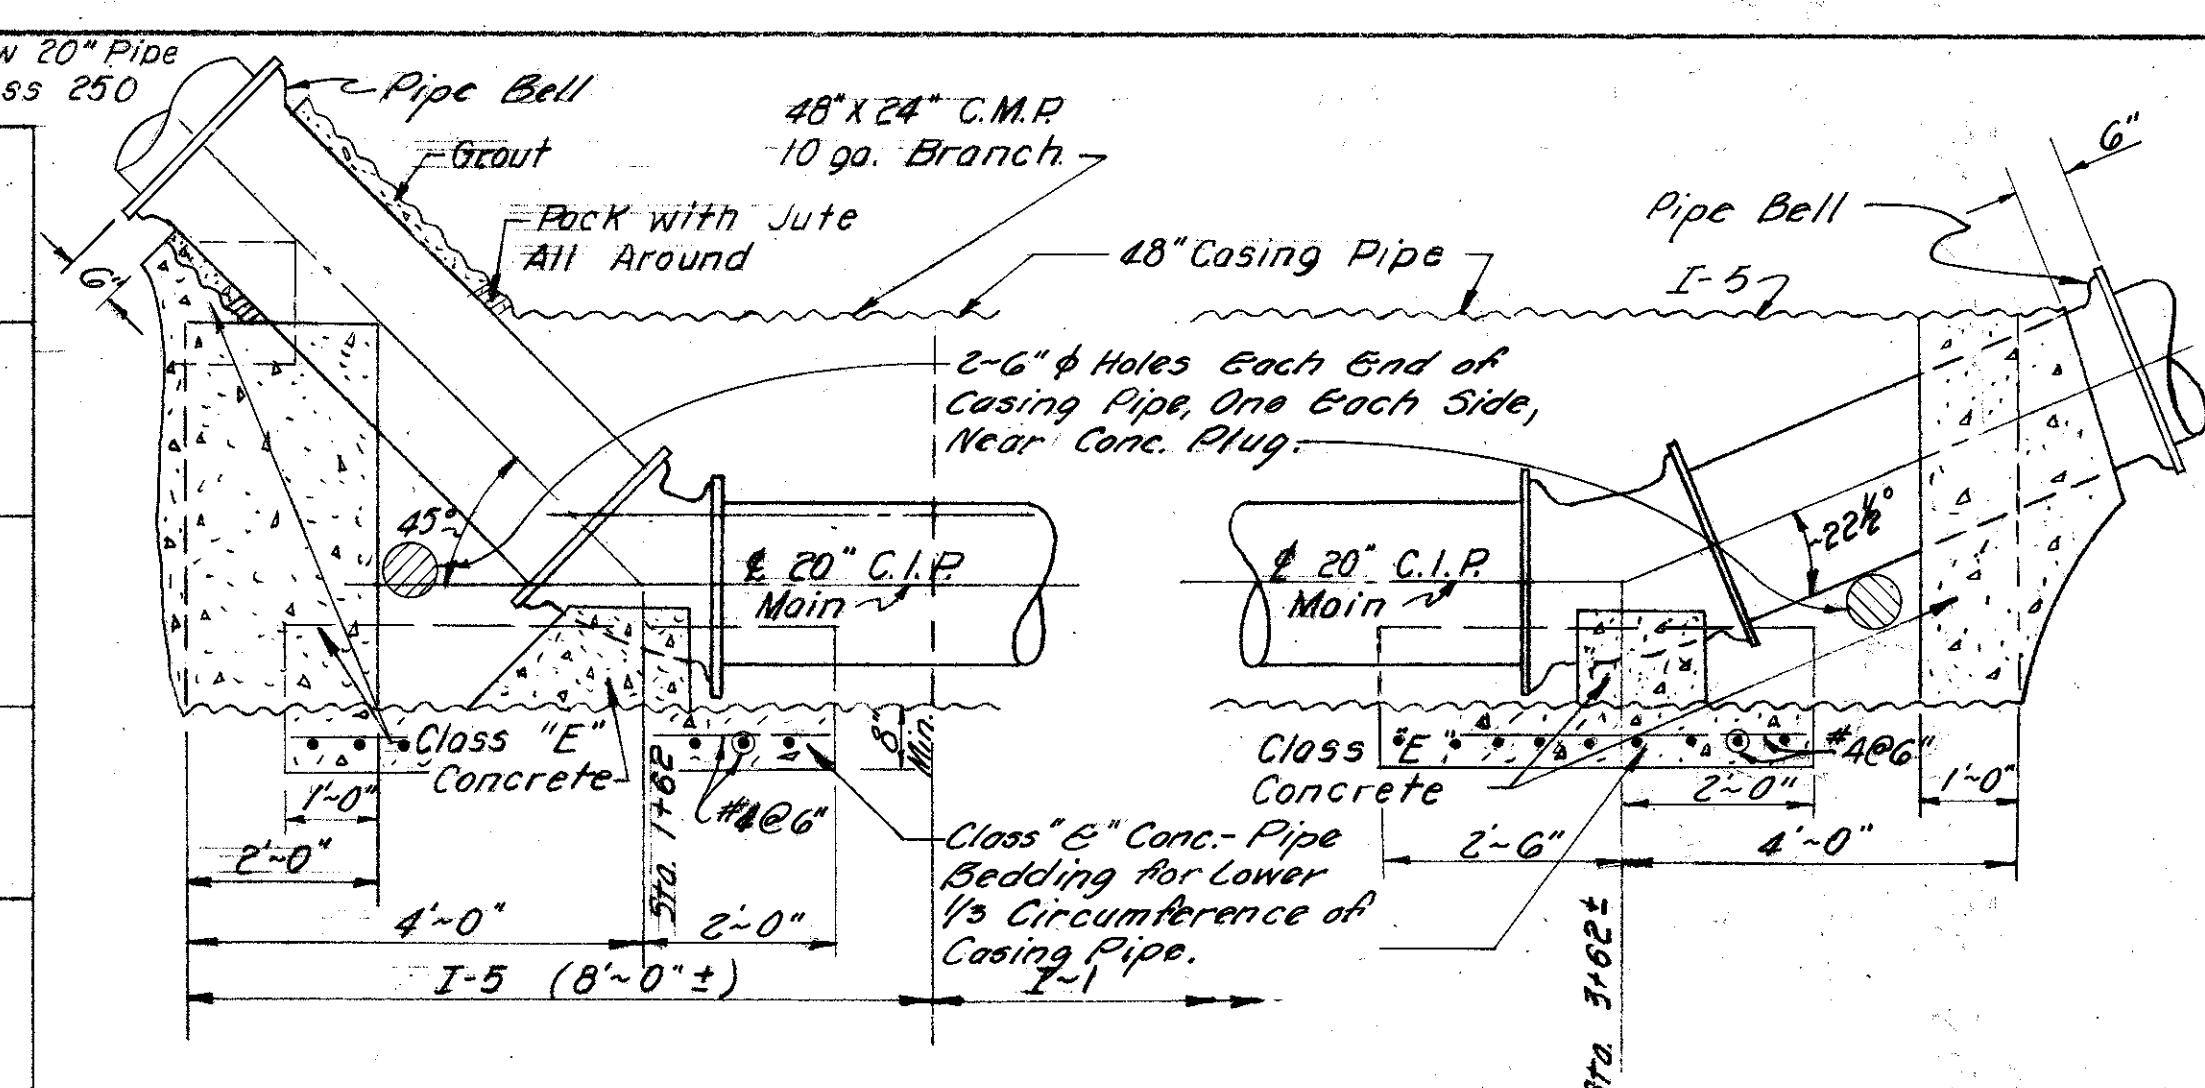 20" Pipe
250
Pipe Bell
Grout
Pack with Jute
All Around
48" X 24" C.M.P.
10 ga. Branch
48" Casing Pipe
Pipe Bell
I-5
6"
6"
2~6" ϕ Holes Each End of
Casing Pipe, One Each Side,
Near Conc. Plug.
45°
22½°
℄ 20" C.I.P.
Main
℄ 20" C.I.P.
Main
Class "E"
Concrete
8"
Min.
Class "E"
Concrete
#4@6"
#4@6"
1'~0"
2'~0"
4'~0"
2'~0"
Sta. 1+62
I-5 (8'~0" ±)
I~1
Class "E" Conc.- Pipe
Bedding for Lower
1/3 Circumference of
Casing Pipe.
2'~6"
2'~0"
1'~0"
4'~0"
Sta. 3+62±